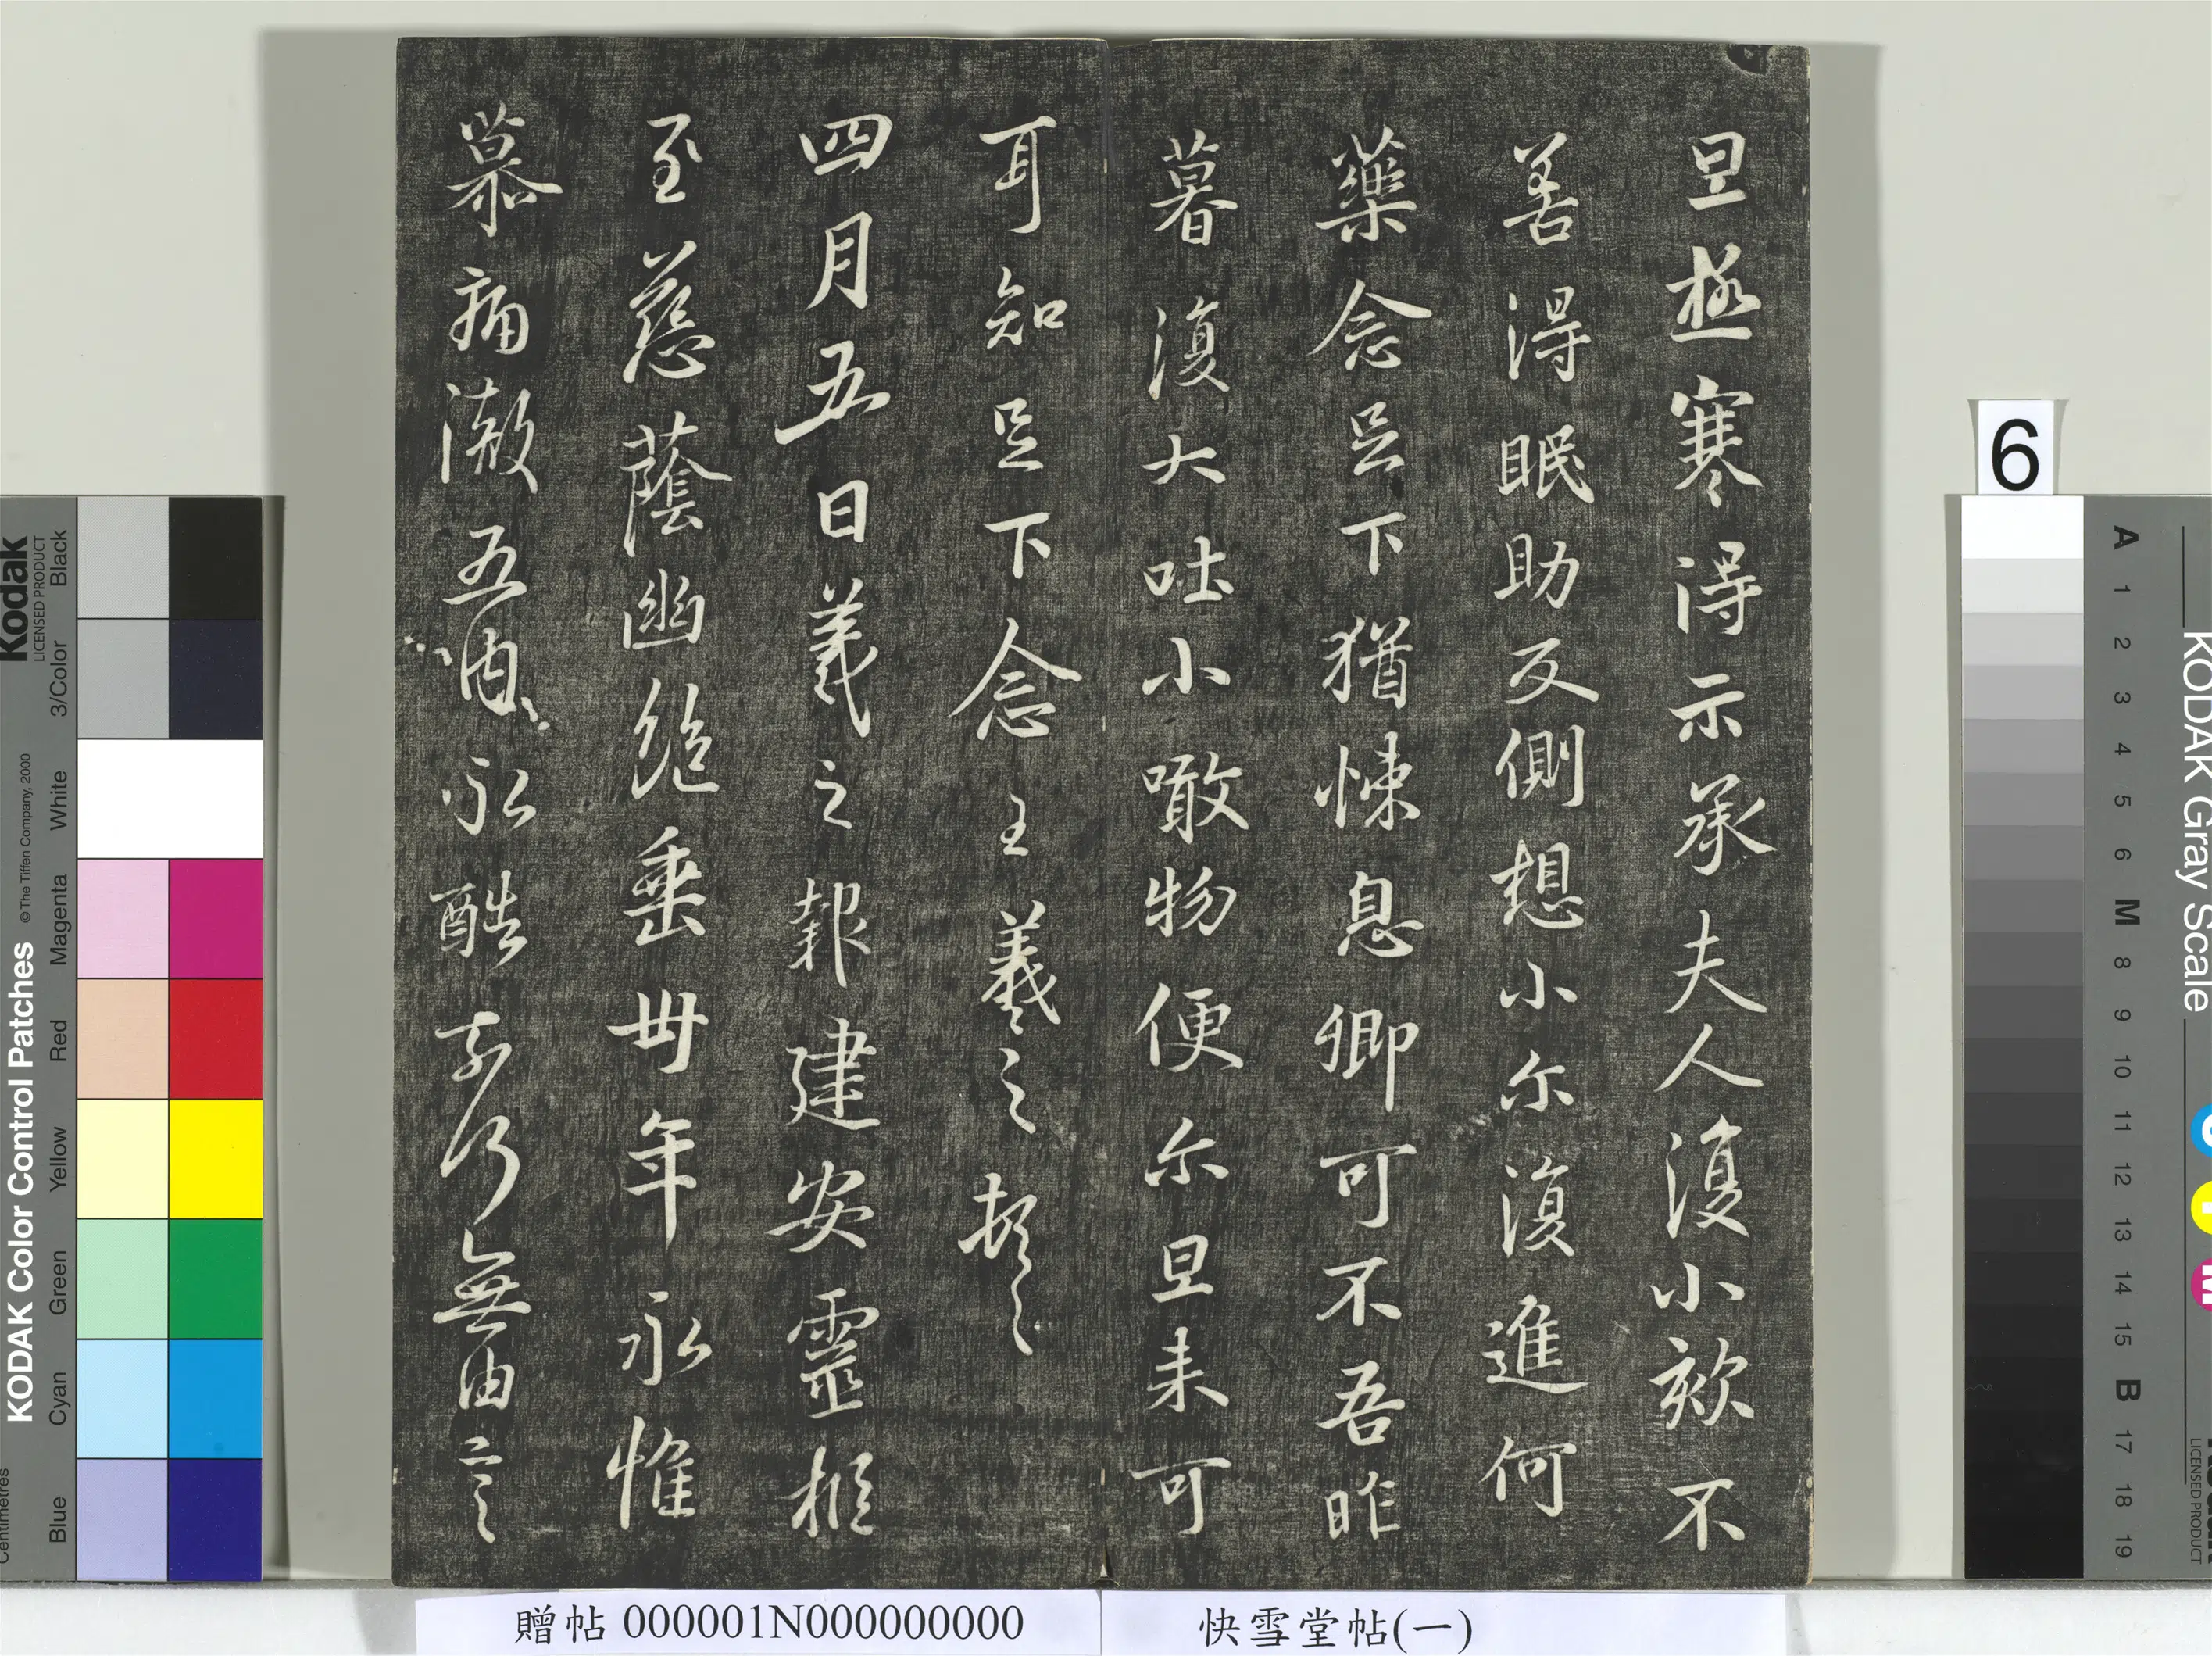 旦極寒得示承夫人復小欬不
善得眠助反側想小尓復進何
藥念足下猶悚息卿可不吾昨
暮復大吐小噉物便尓旦来可
耳知足下念王羲之頓首
四月五日羲之報建安靈柩
至慈蔭幽絶垂卅年永惟
慕痛徹五內永酷奈何無由言
贈帖 000001N000000000
快雪堂帖(一)
6
Kodak
LICENSED PRODUCT
KODAK Color Control Patches
© The Tiffen Company, 2000
Black
3/Color
White
Magenta
Red
Yellow
Green
Cyan
Blue
Centimetres
KODAK Gray Scale
A 1 2 3 4 5 6 M 8 9 10 11 12 13 14 15 B 17 18 19
C
Y
M
LICENSED PRODUCT